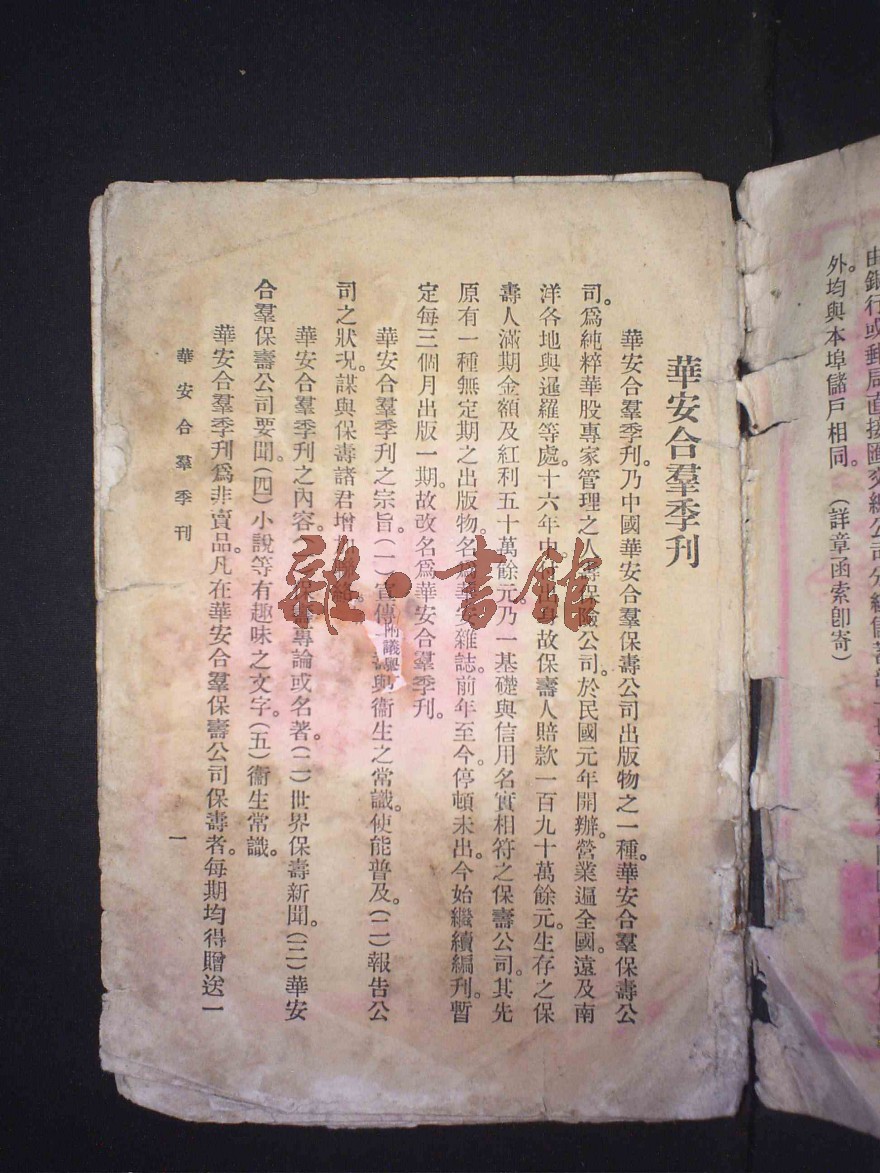 外。均與本埠儲戶相同。(詳章函索卽寄)
華安合羣季刊
華安合羣季刊。乃中國華安合羣保壽公司出版物之一種。華安合羣保壽公
司。爲純粹華股專家管理之人壽保險公司。於民國元年開辦。營業遍全國。遠及南
洋各地與暹羅等處。十六年中。故保壽人賠款一百九十萬餘元。生存之保
壽人滿期金額及紅利五十萬餘元。乃一基礎與信用名實相符之保壽公司。其先
原有一種無定期之出版物。名爲華安雜誌。前年至今。停頓未出。今始繼續編刊。暫
定每三個月出版一期。故改名爲華安合羣季刊。
華安合羣季刊之宗旨。(一)宣傳與衞生之常識。使能普及。(二)報告公
司之狀况。謀與保壽諸君增
華安合羣季刊之內容。專論或名著。(二)世界保壽新聞。(三)華安
合羣保壽公司要聞。(四)小說等有趣味之文字。(五)衞生常識。
華安合羣季刊爲非賣品。凡在華安合羣保壽公司保壽者。每期均得贈送一
華安合羣季刊
一
雜·書館